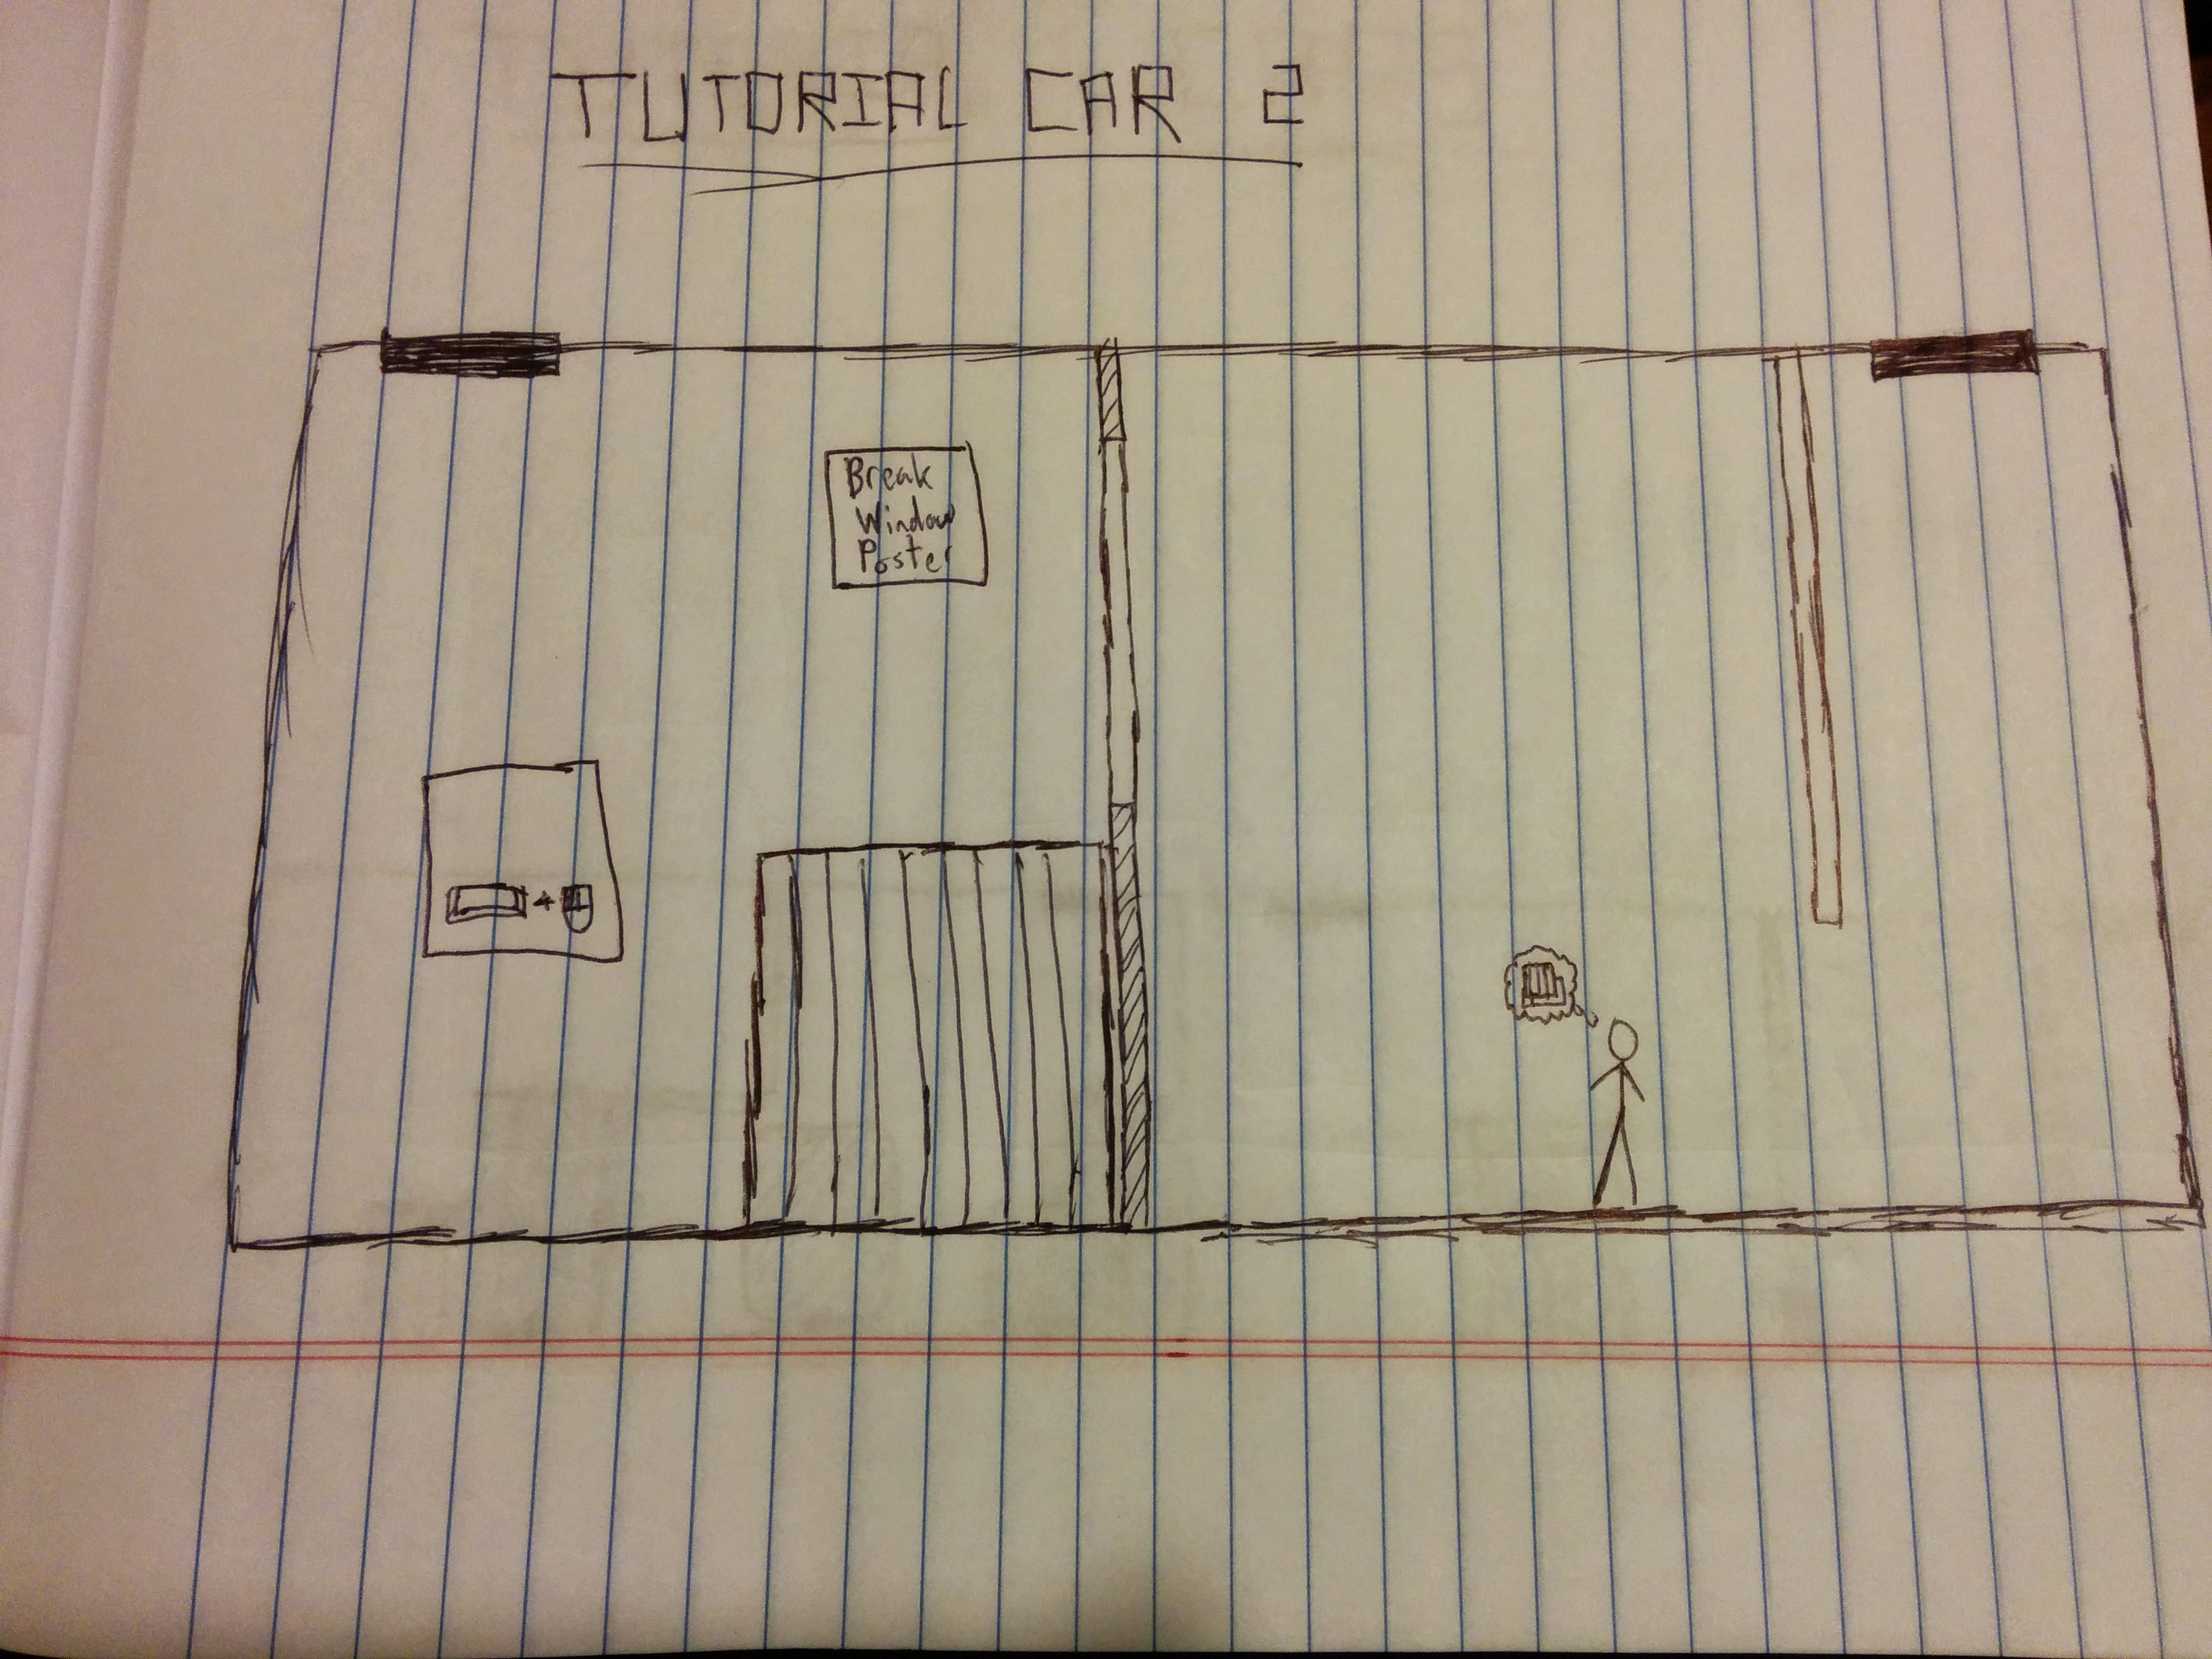 TUTORIAL CAR 2
Break
Window
Poster